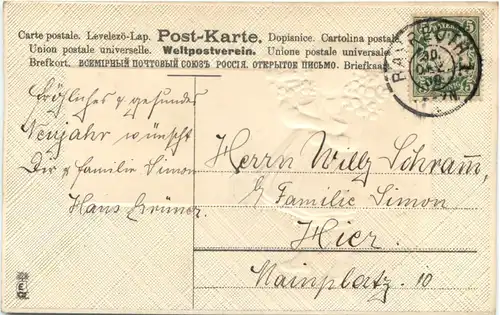 Carte postale. Levelezö-Lap. Post-Karte. Dopisnice. Cartolina postale.
Union postale universelle. Weltpostverein. Unione postale universale.
Brefkort. ВСЕМІРНЫЙ ПОЧТОВЫЙ СОЮЗЪ РОССІЯ. ОТКРЫТОЕ ПИСЬМО. Briefkaart.
5
BAYREUTH 1
5
Fröhliches & gesundes
Neujahr wünscht
Dir & Familie Simon
Hans
Herrn Willy Schramm,
b/ Familie Simon
Hier.
Mainplatz. 10